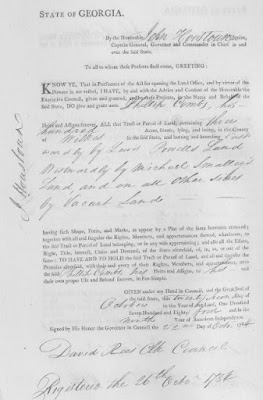 STATE OF GEORGIA.
By the Honorable John Houstoun
Captain General, Governor and Commander in Chief in and
over the said State.
To all to whom these Presents shall come, GREETING:
KNOW YE, That in Pursuance of the Act for opening the Land Office, and by virtue of the
Powers in me vested, I HAVE, by and with the Advice and Consent of the Honorable the
Executive Council, given and granted, and by these Presents, in the Name and Behalf of the
said State, DO give and grant unto Phillip Combs, his
Heirs and Assigns forever, ALL that Tract or Parcel of Land, containing three
hundred Acres, situate, lying, and being, in the County
of Wilkes in the said State, and butting and bounding East
wardly by Lewis Powells Land
Westwardly by Michael Smalleys
Land, and on all other sides
by Vacant Lands
J Houstoun
having such Shape, Form, and Marks, as appear by a Plat of the same hereunto annexed;
together with all and singular the Rights, Members, and Appurtenances thereof, whatsoever, to
the said Tract or Parcel of Land belonging, or in any wise appertaining; and also all the Estate,
Right, Title, Interest, Claim and Demand, of the State aforesaid, of, in, to, or out of the
same: TO HAVE AND TO HOLD the said Tract or Parcel of Land, and all and singular the
Premises aforesaid, with their and every of their Rights, Members, and Appurtenances, unto
the said Phillip Combs his Heirs and Assigns, to his and
their own proper Use and Behoof forever, in Fee Simple.
GIVEN under my Hand in Council, and the Great Seal of
the said State, this twenty second Day of
October in the Year of our Lord One Thousand
Seven Hundred and Eighty four and in the
ninth Year of American Independence.
Signed by His Honor the Governor in Council the 22d Day of Octo. 1784
David Rees Clk Council
Registered the 26th Octo. 1784